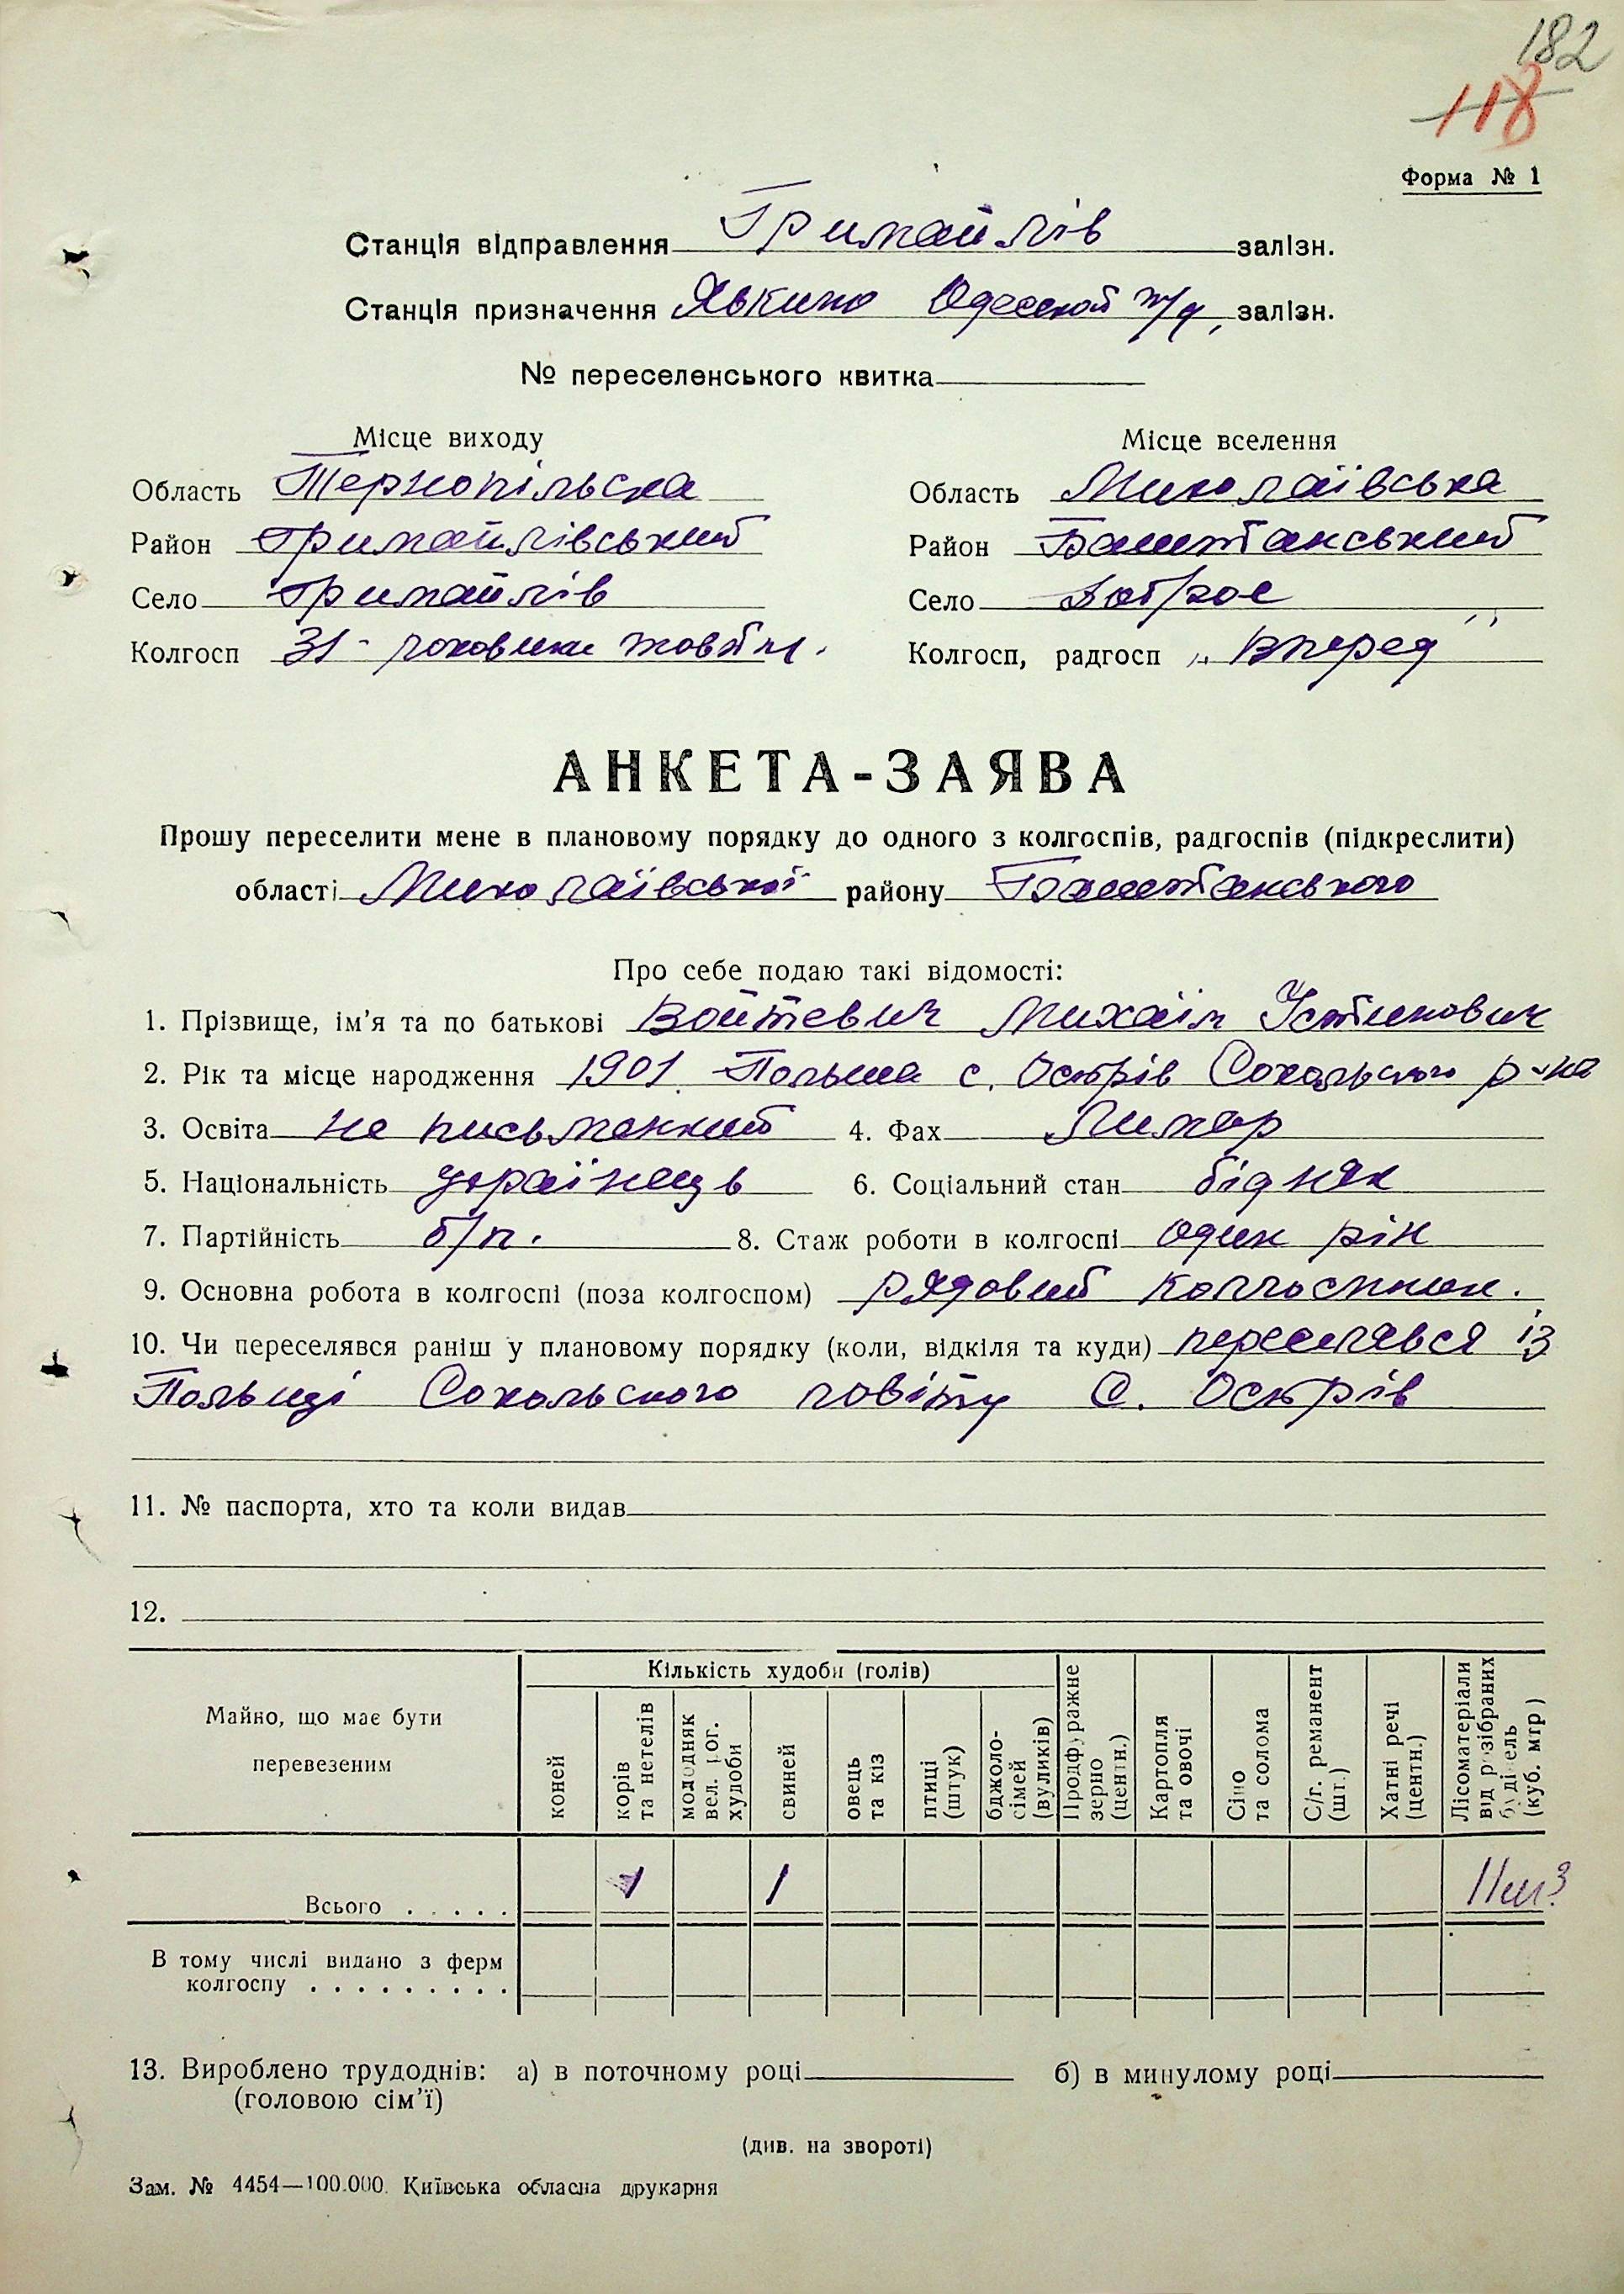 182
118
Форма № 1
Станція відправлення Гримайлів залізн.
Станція призначення Явкино Одеской ж/д, залізн.
№ переселенського квитка
Місце виходу
Область Тернопільска
Район Гримайлівський
Село Гримайлів
Колгосп 31-роковини жовтн.
Місце вселення
Область Миколаївська
Район Баштанський
Село Доброе
Колгосп, радгосп „Вперед"
АНКЕТА-ЗАЯВА
Прошу переселити мене в плановому порядку до одного з колгоспів, радгоспів (підкреслити)
області Миколаївської району Баштанського
Про себе подаю такі відомості:
1. Прізвище, ім'я та по батькові Войтевич Михаіл Устинович
2. Рік та місце народження 1901 Польша с. Острів Сокальского р-на
3. Освіта не письменний 4. Фах Лимар
5. Національність українець 6. Соціальний стан бідняк
7. Партійність б/п. 8. Стаж роботи в колгоспі один рік
9. Основна робота в колгоспі (поза колгоспом) рядовий колгоспник.
10. Чи переселявся раніш у плановому порядку (коли, відкіля та куди) переселявся із
Польщі Сокальского повіту С. Острів
11. № паспорта, хто та коли видав
12.
Майно, що має бути перевезеним
Кількість худоби (голів)
коней
корів та нетелів
молодняк вел. рог. худоби
свиней
овець та кіз
птиці (штук)
бджоло-сімей (вуликів)
Продфуражне зерно (центн.)
Картопля та овочі
Сіно та солома
С/г. реманент (шт.)
Хатні речі (центн.)
Лісоматеріали від розібраних будівель (куб. мтр)
Всього . . . . . 1 1
В тому числі видано з ферм
колгоспу . . . . . . . . .
13. Вироблено трудоднів: а) в поточному році б) в минулому році
(головою сім'ї)
(див. на звороті)
Зам. № 4454—100.000. Київська обласна друкарня